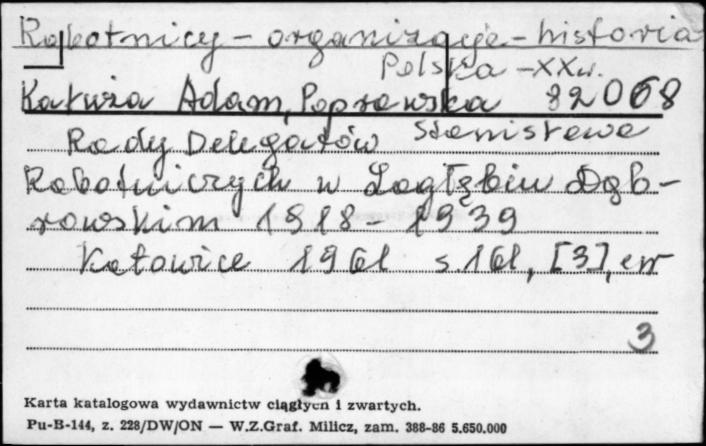 Robotnicy - organizacje - historia
Polska - XX w.
Kałuża Adam, Poprawska 82068
Stanisława
Rady Delegatów
Robotniczych w Zagłębiu Dąb-
rowskim 1918-1939
Katowice 1961 s. 161, [3], err
3
Karta katalogowa wydawnictw ciągłych i zwartych.
Pu-B-144, z. 228/DW/ON — W.Z.Graf. Milicz, zam. 388-86 5.650.000